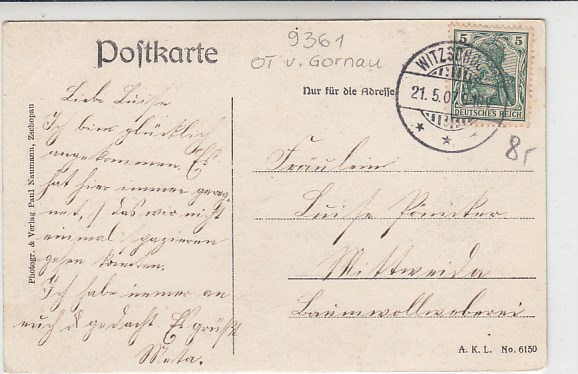 Postkarte
9361
OT v. Gornau
Nur für die Adresse
WITZSCHD
21.5.07
5 5
DEUTSCHES REICH
8,-
Photogr. & Verlag Paul Naumann, Zschopau
Liebe Luise
Ich bin glücklich
angekommen. Es
hat hier immer gereg-
net, daß wir nicht
einmal spazieren
gehen konnten.
Ich habe immer an
euch gedacht. Es grüßt
Meta.
Fräulein
Luise Pönicker
Mittweida
Baumwollweberei
A. K. L. No. 6150